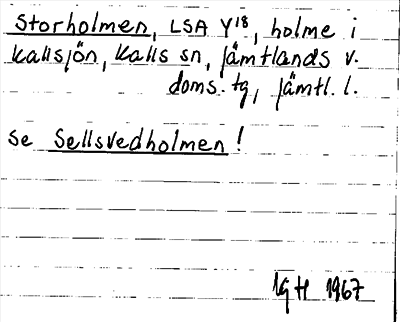 Storholmen, LSA Y18, holme i
Kallsjön, Kalls sn, Jämtlands v.
doms. tg, Jämtl. l.
se Sellsvedholmen!
1967